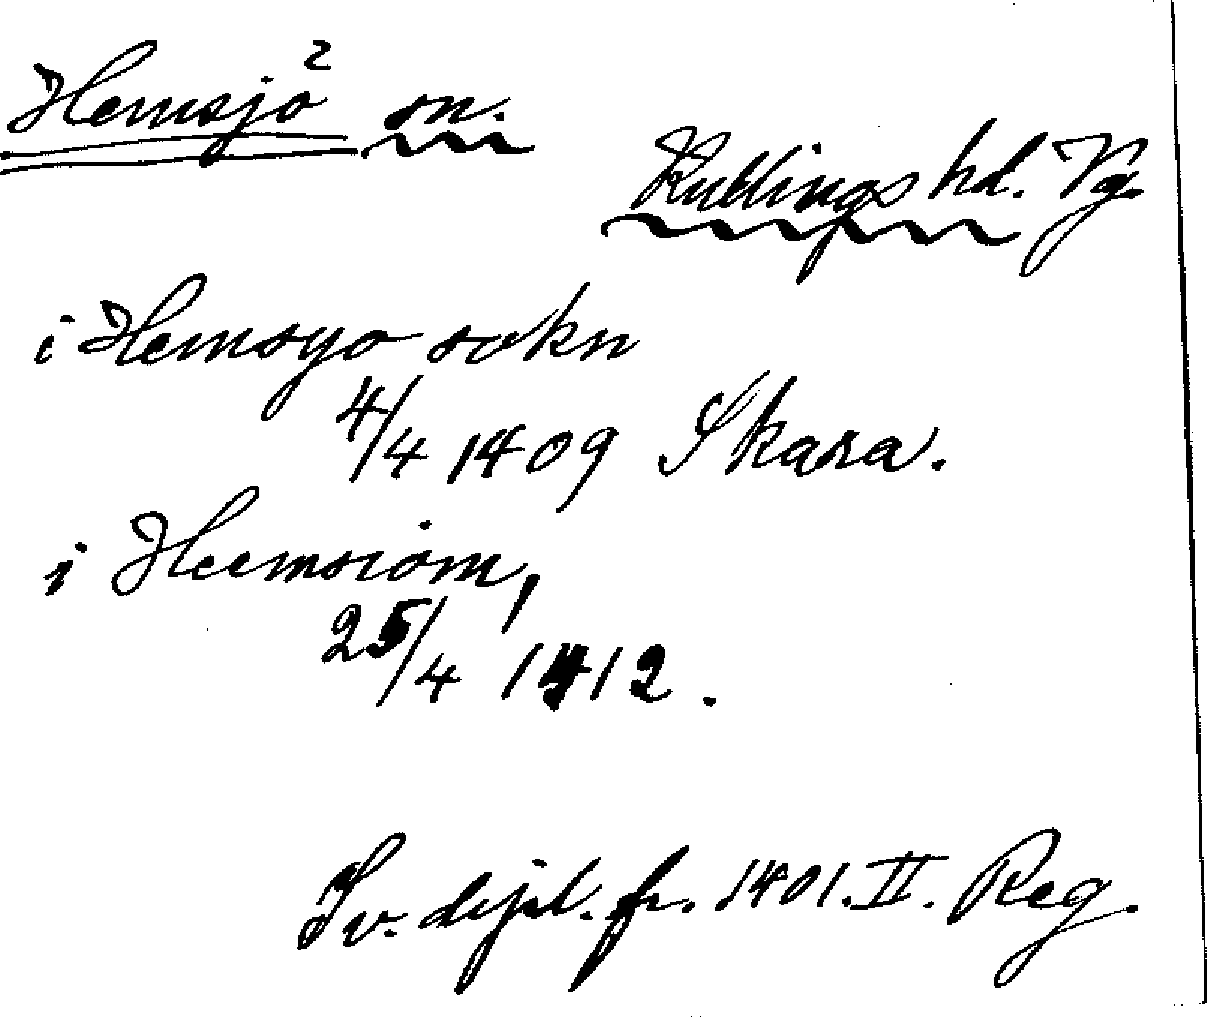 Hemsjö 2 sn.
Kullings hd. Vg.
i Hemsyo sokn
4/4 1409 Skara.
i Heemsiom,
25/4 1412.
Sv. dipl. fr. 1401. II. Reg.